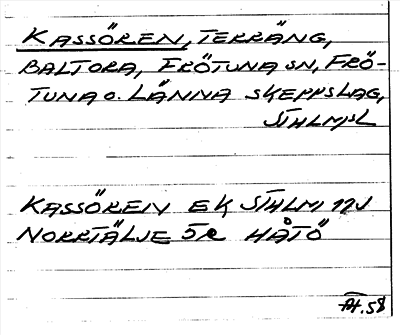 KASSÖREN, TERRÄNG,
BALTORA, FRÖTUNA SN, FRÖ-
TUNA O. LÄNNA SKEPPSLAG,
STHLMSL
KASSÖREN EK STHLM 12J
NORRTÄLJE 5c HÅTÖ